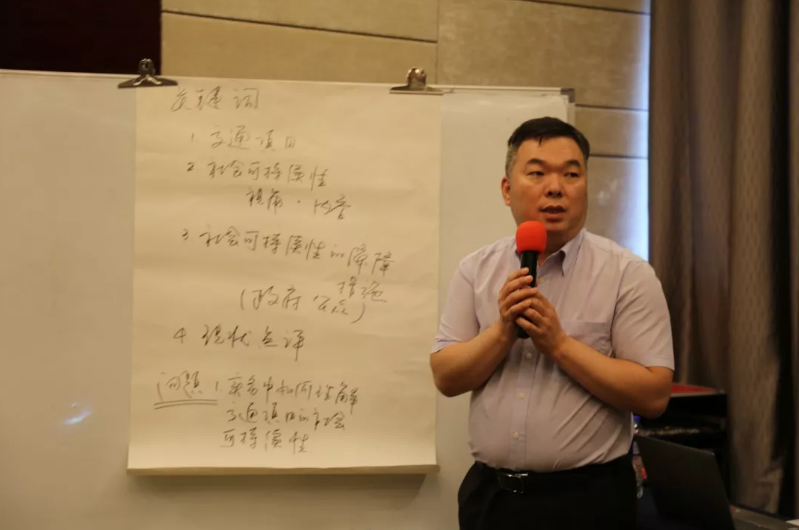 关键词
1 交通项目
2 社会可持续性
视角·内容
3 社会可持续性的保障
措施
(政府 公众)
4 现状点评
问题 1 实务中如何理解
交通项目的社会
可持续性